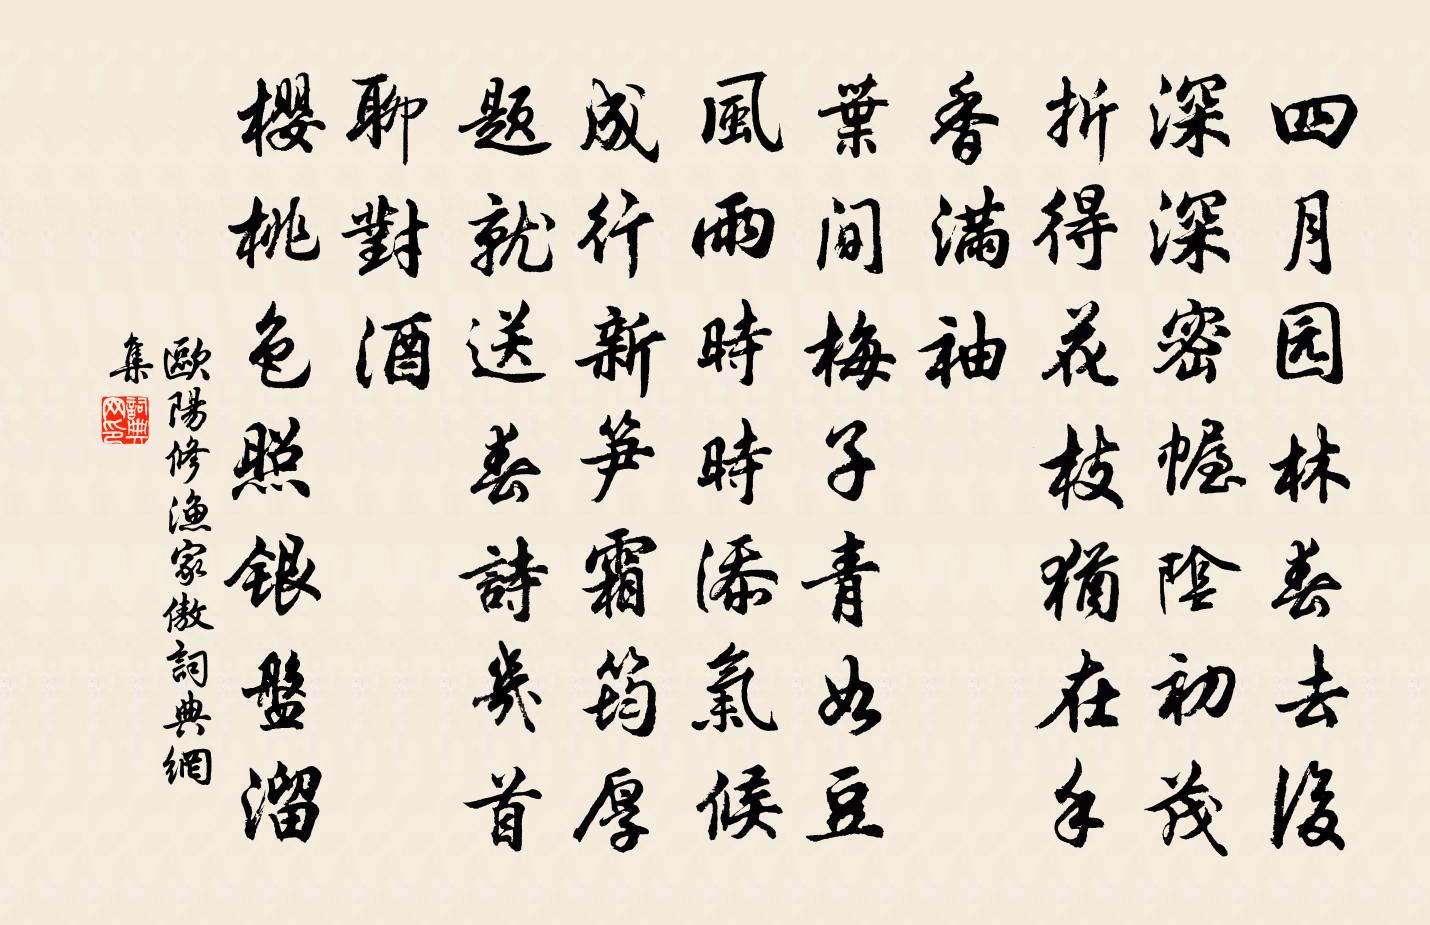 四月园林春去後
深深密幄陰初茂
折得花枝猶在手
香满袖
葉间梅子青如豆
風雨時時添氣候
成行新笋霜筠厚
題就送春詩幾首
聊對酒
櫻桃色照銀盤溜
歐陽修漁家傲詞典網
集
詞典
网印